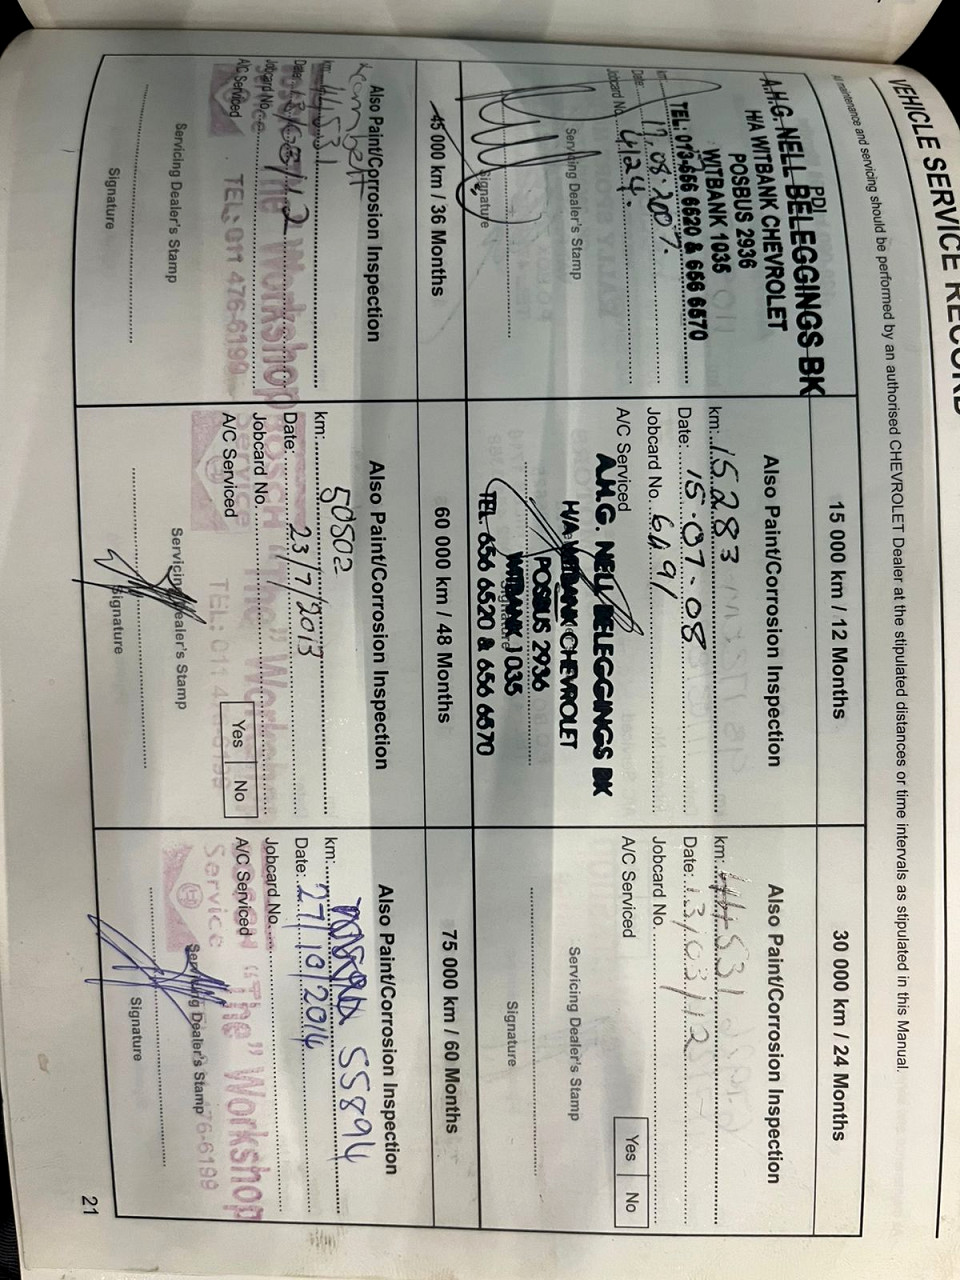 VEHICLE SERVICE RECORD
All maintenance and servicing should be performed by an authorised CHEVROLET Dealer at the stipulated distances or time intervals as stipulated in this Manual.
PDI
A.H.G. NELL BELEGGINGS BK
H/A WITBANK CHEVROLET
POSBUS 2936
WITBANK 1035
TEL: 013-656 6520 & 656 6570
km:
Date: 17.08.2007.
Jobcard No. 4124.
Servicing Dealer's Stamp
Signature
15 000 km / 12 Months
Also Paint/Corrosion Inspection
km: 15283
Date: 15-07-08
Jobcard No. 6491
A/C Serviced
A.H.G. NELL BELEGGINGS BK
H/A WITBANK CHEVROLET
POSBUS 2936
WITBANK 1035
TEL: 656 6520 & 656 6570
Signature
30 000 km / 24 Months
Also Paint/Corrosion Inspection
km: 44531
Date: 13/03/12
Jobcard No.
A/C Serviced
Yes No
Servicing Dealer's Stamp
Signature
45 000 km / 36 Months
Also Paint/Corrosion Inspection
km: 44531
Date: 13/03/12
Jobcard No.
A/C Serviced
"The" Workshop
TEL: 011 476-6199
Servicing Dealer's Stamp
Signature
60 000 km / 48 Months
Also Paint/Corrosion Inspection
km: 50502
Date: 23/7/2013
Jobcard No.
A/C Serviced
Yes No
BOSCH "The" Workshop
Service
TEL: 011 476-6199
Servicing Dealer's Stamp
Signature
75 000 km / 60 Months
Also Paint/Corrosion Inspection
km: 55894
Date: 27/10/2014
Jobcard No.
A/C Serviced
BOSCH "The" Workshop
Service
476-6199
Servicing Dealer's Stamp
Signature
21